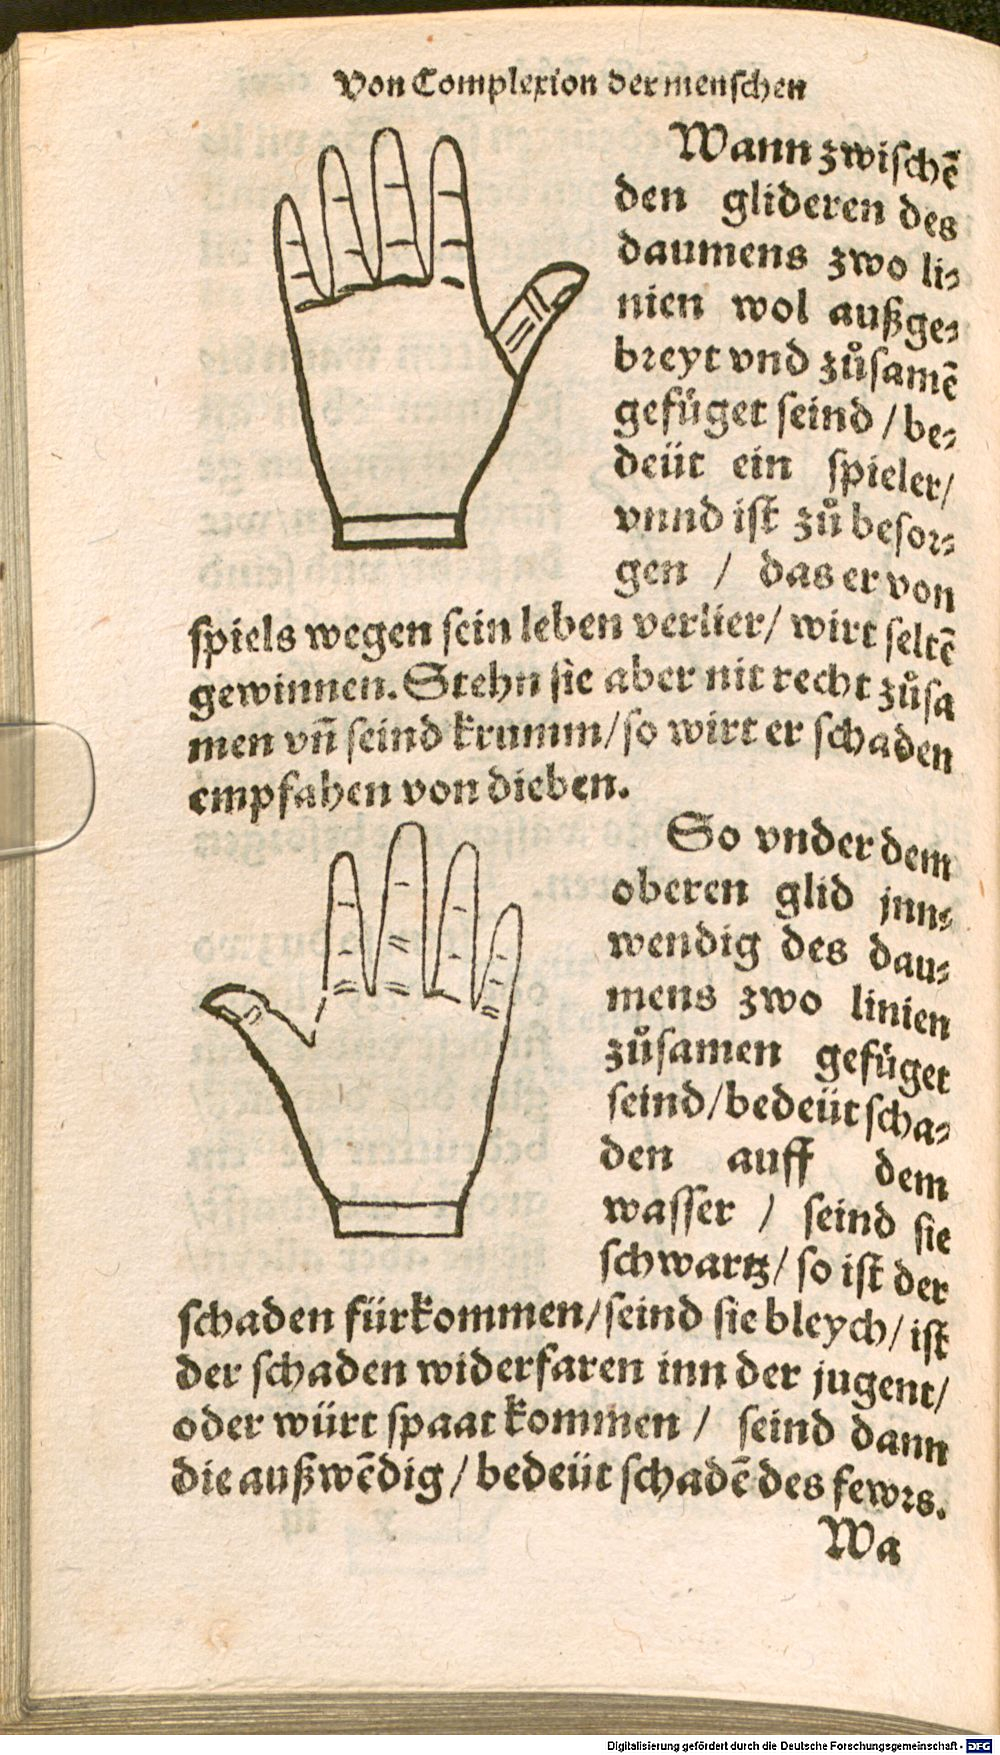 Von Complexion der menschen
Wann zwischē
den glideren des
daumens zwo li⸗
nien wol außge⸗
breyt vnd zůsamē
gefüget seind / be⸗
deüt ein spieler/
vnnd ist zů besor⸗
gen / das er von
spiels wegen sein leben verlier/ wirt seltē
gewinnen. Stehn sie aber nit recht zůsa
men vn̄ seind krumm/so wirt er schaden
empfahen von dieben.
So vnder dem
oberen glid jnn⸗
wendig des dau⸗
mens zwo linien
zůsamen gefüget
seind/bedeüt scha⸗
den auff dem
wasser / seind sie
schwartz/ so ist der
schaden fürkommen/seind sie bleych/ ist
der schaden widerfaren inn der jugent/
oder würt spaat kommen / seind dann
die außwēdig / bedeüt schadē des fewrs.
Wa
Digitalisierung gefördert durch die Deutsche Forschungsgemeinschaft - DFG